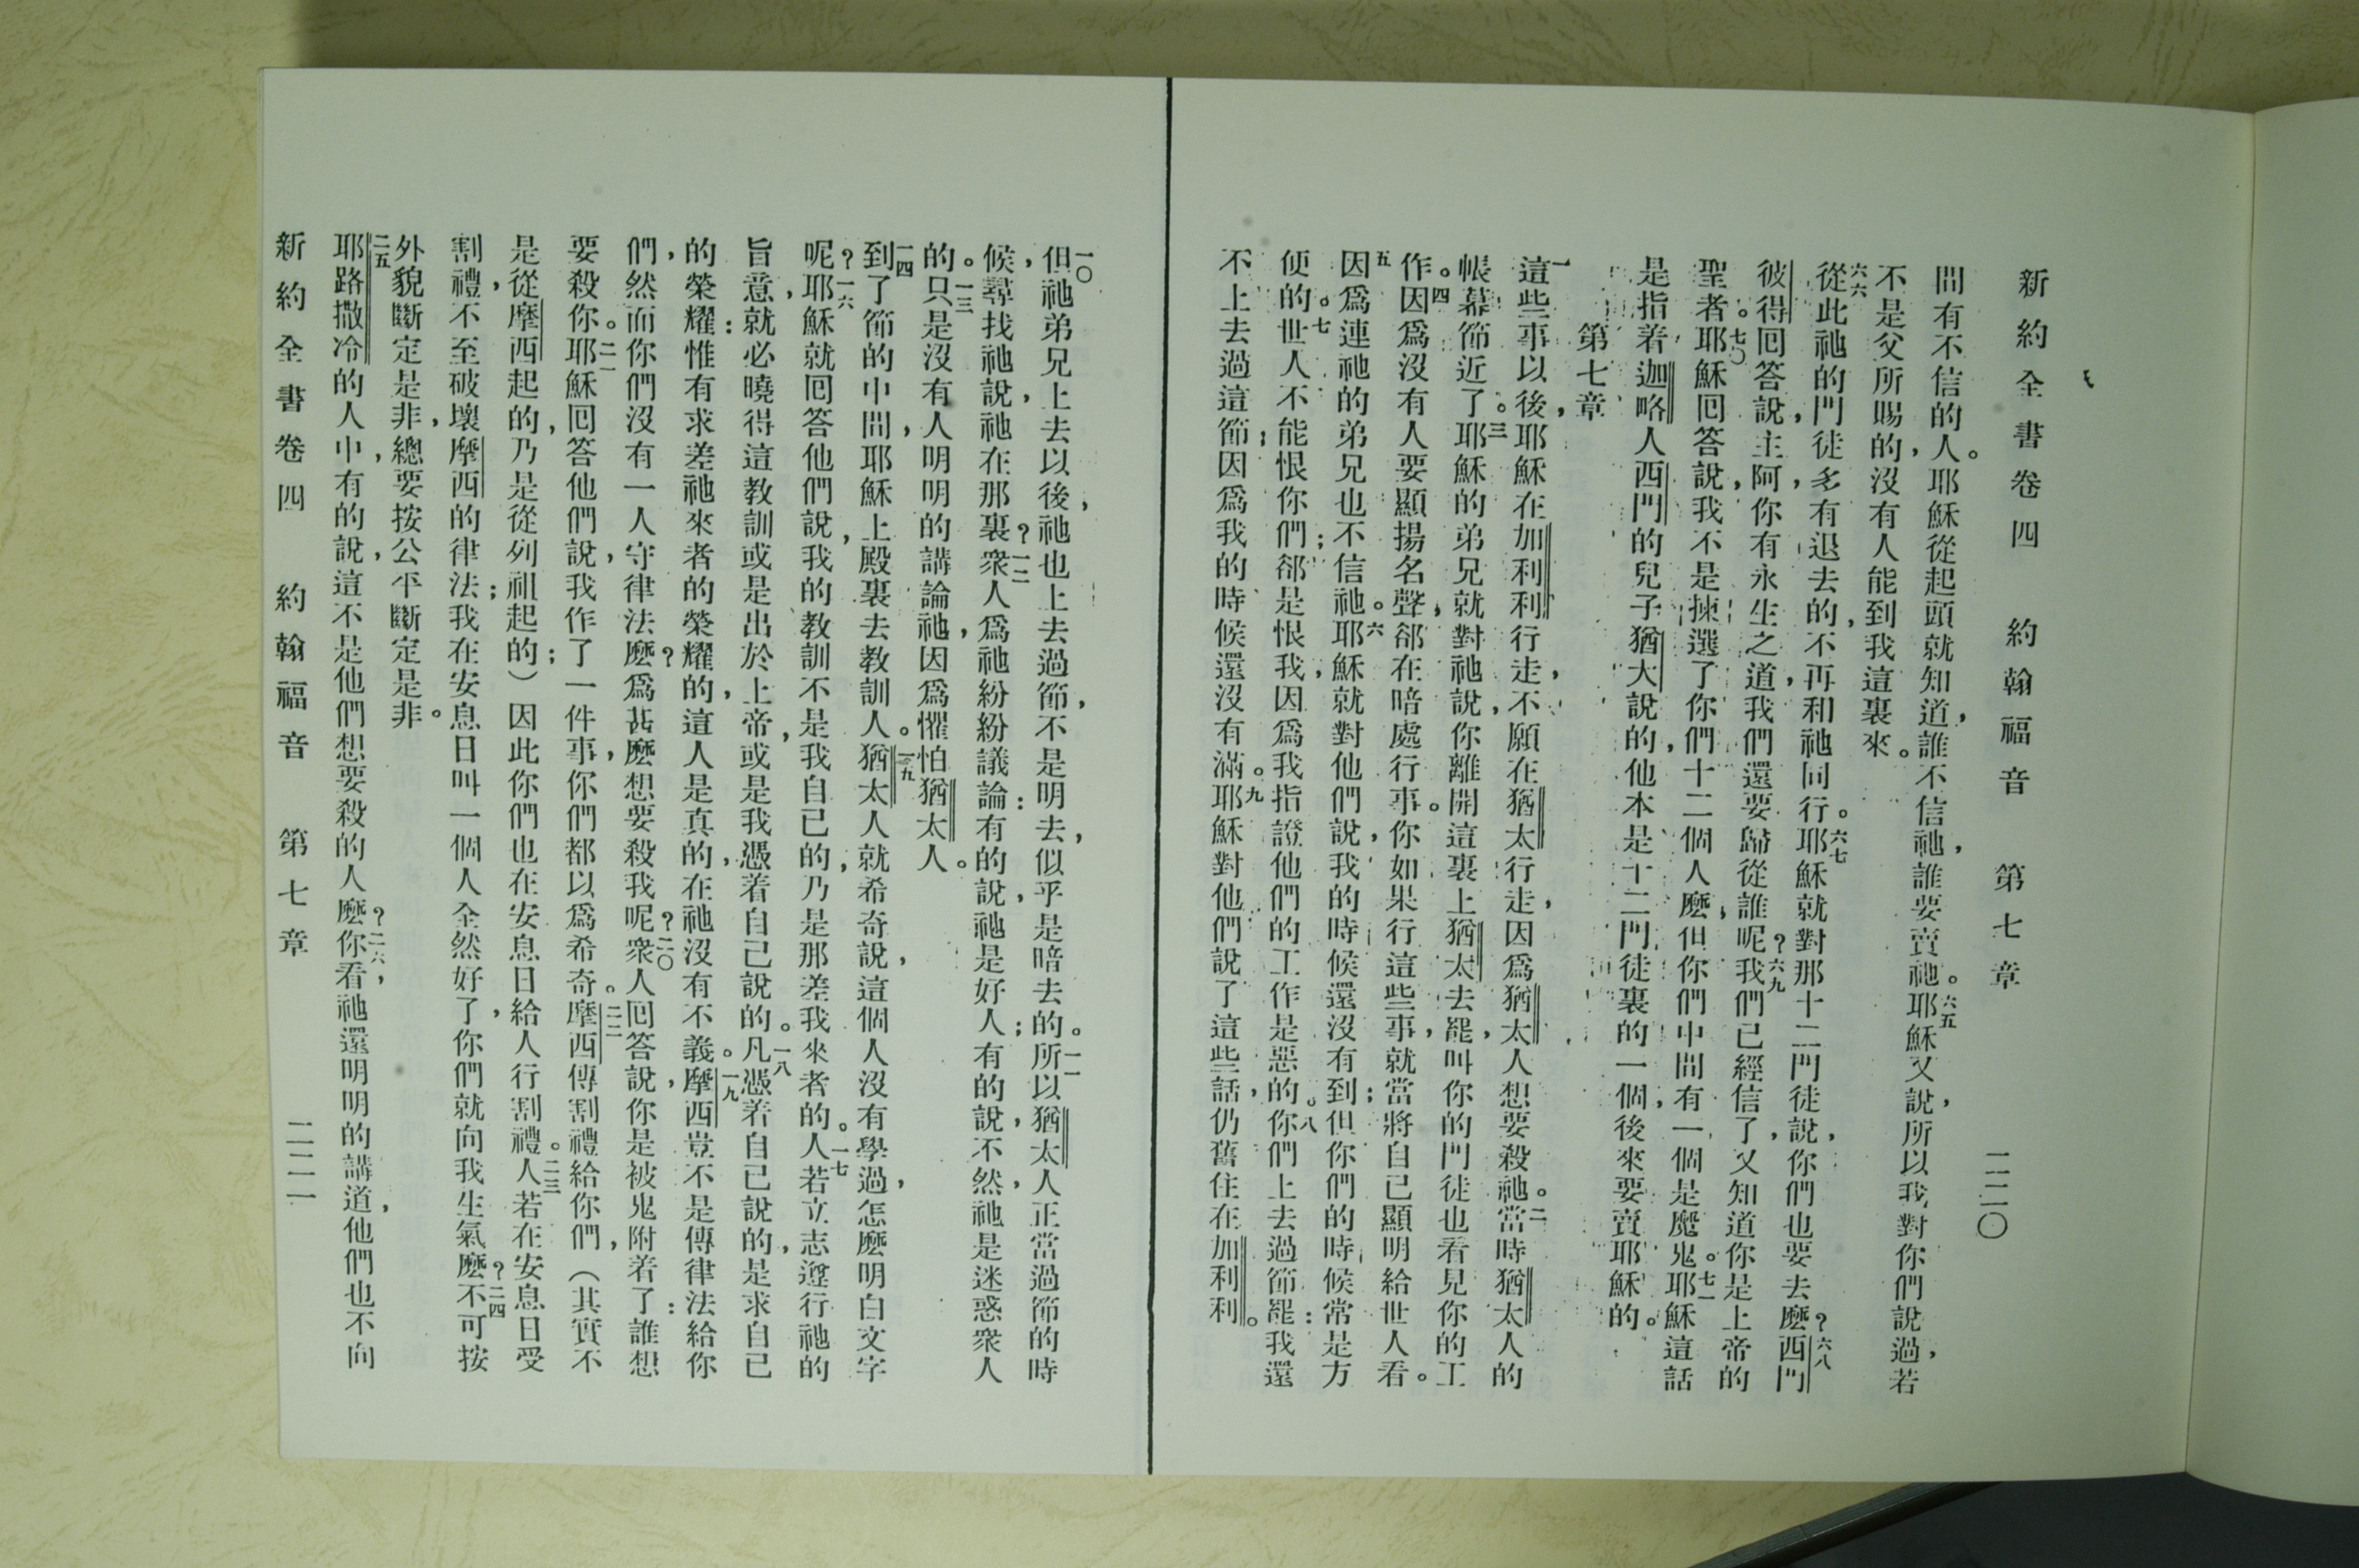 新約全書卷四　約翰福音　第七章　二二〇
間有不信的人。耶穌從起頭就知道，誰不信祂，誰要賣祂。六五耶穌又說，所以我對你們說過，若
不是父所賜的，沒有人能到我這裏來。
六六從此祂的門徒，多有退去的，不再和祂同行。六七耶穌就對那十二門徒說，你們也要去麼？六八西門
彼得回答說，主阿，你有永生之道，我們還要歸從誰呢？六九我們已經信了，又知道你是上帝的
聖者。七〇耶穌回答說，我不是揀選了你們十二個人麼，但你們中間有一個是魔鬼。七一耶穌這話
是指着迦略人西門的兒子猶大說的，他本是十二門徒裏的一個，後來要賣耶穌的。
第七章
一這些事以後，耶穌在加利利行走，不願在猶太行走，因爲猶太人想要殺祂。二當時猶太人的
帳幕節近了。三耶穌的弟兄就對祂說，你離開這裏上猶太去罷，叫你的門徒也看見你的工
作。四因爲沒有人要顯揚名聲，郤在暗處行事。你如果行這些事，就當將自己顯明給世人看。
五因爲連祂的弟兄也不信祂。六耶穌就對他們說，我的時候還沒有到；但你們的時候常是方
便的。七世人不能恨你們；郤是恨我，因爲我指證他們的工作是惡的。八你們上去過節罷：我還
不上去過這節；因爲我的時候還沒有滿。九耶穌對他們說了這些話，仍舊住在加利利。
一〇但祂弟兄上去以後，祂也上去過節，不是明去，似乎是暗去的。一一所以猶太人正當過節的時
候，尋找祂說，祂在那裏？一二衆人爲祂紛紛議論：有的說，祂是好人；有的說，不然，祂是迷惑衆人
的。一三只是沒有人明明的講論祂，因爲懼怕猶太人。
一四到了節的中間，耶穌上殿裏去教訓人。一五猶太人就希奇說，這個人沒有學過，怎麼明白文字
呢？一六耶穌就回答他們說，我的教訓不是我自己的，乃是那差我來者的。一七人若立志遵行祂的
旨意，就必曉得這教訓或是出於上帝，或是我憑着自己說的。一八凡憑着自己說的，是求自己
的榮耀：惟有求差祂來者的榮耀的，這人是真的，在祂沒有不義。一九摩西豈不是傳律法給你
們，然而你們沒有一人守律法麼？爲甚麼想要殺我呢？二〇衆人回答說，你是被鬼附着了：誰想
要殺你。二一耶穌回答他們說，我作了一件事，你們都以爲希奇。二二摩西傳割禮給你們，（其實不
是從摩西起的，乃是從列祖起的；）因此你們也在安息日給人行割禮。二三人若在安息日受
割禮，不至破壞摩西的律法；我在安息日叫一個人全然好了，你們就向我生氣麼？二四不可按
外貌斷定是非，總要按公平斷定是非。
二五耶路撒冷的人中，有的說，這不是他們想要殺的人麼？二六你看祂還明明的講道，他們也不向
新約全書卷四　約翰福音　第七章　二二一